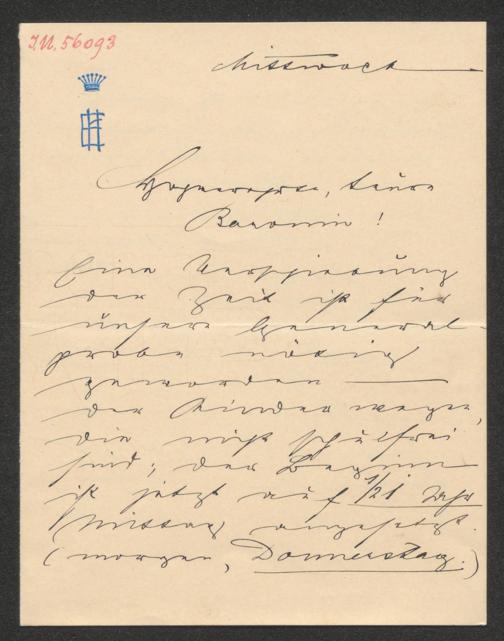 J.N. 56093
Mittwoch
Hochverehrte, teure
Baronin!
Eine Verschiebung
der Zeit ist für
unsere General-
probe nötig
geworden —
der Kinder wegen,
die nicht schulfrei
sind; der Beginn
ist jetzt auf 1/2 1 Uhr
(Mittag) angesetzt.
(morgen, Donnerstag.)